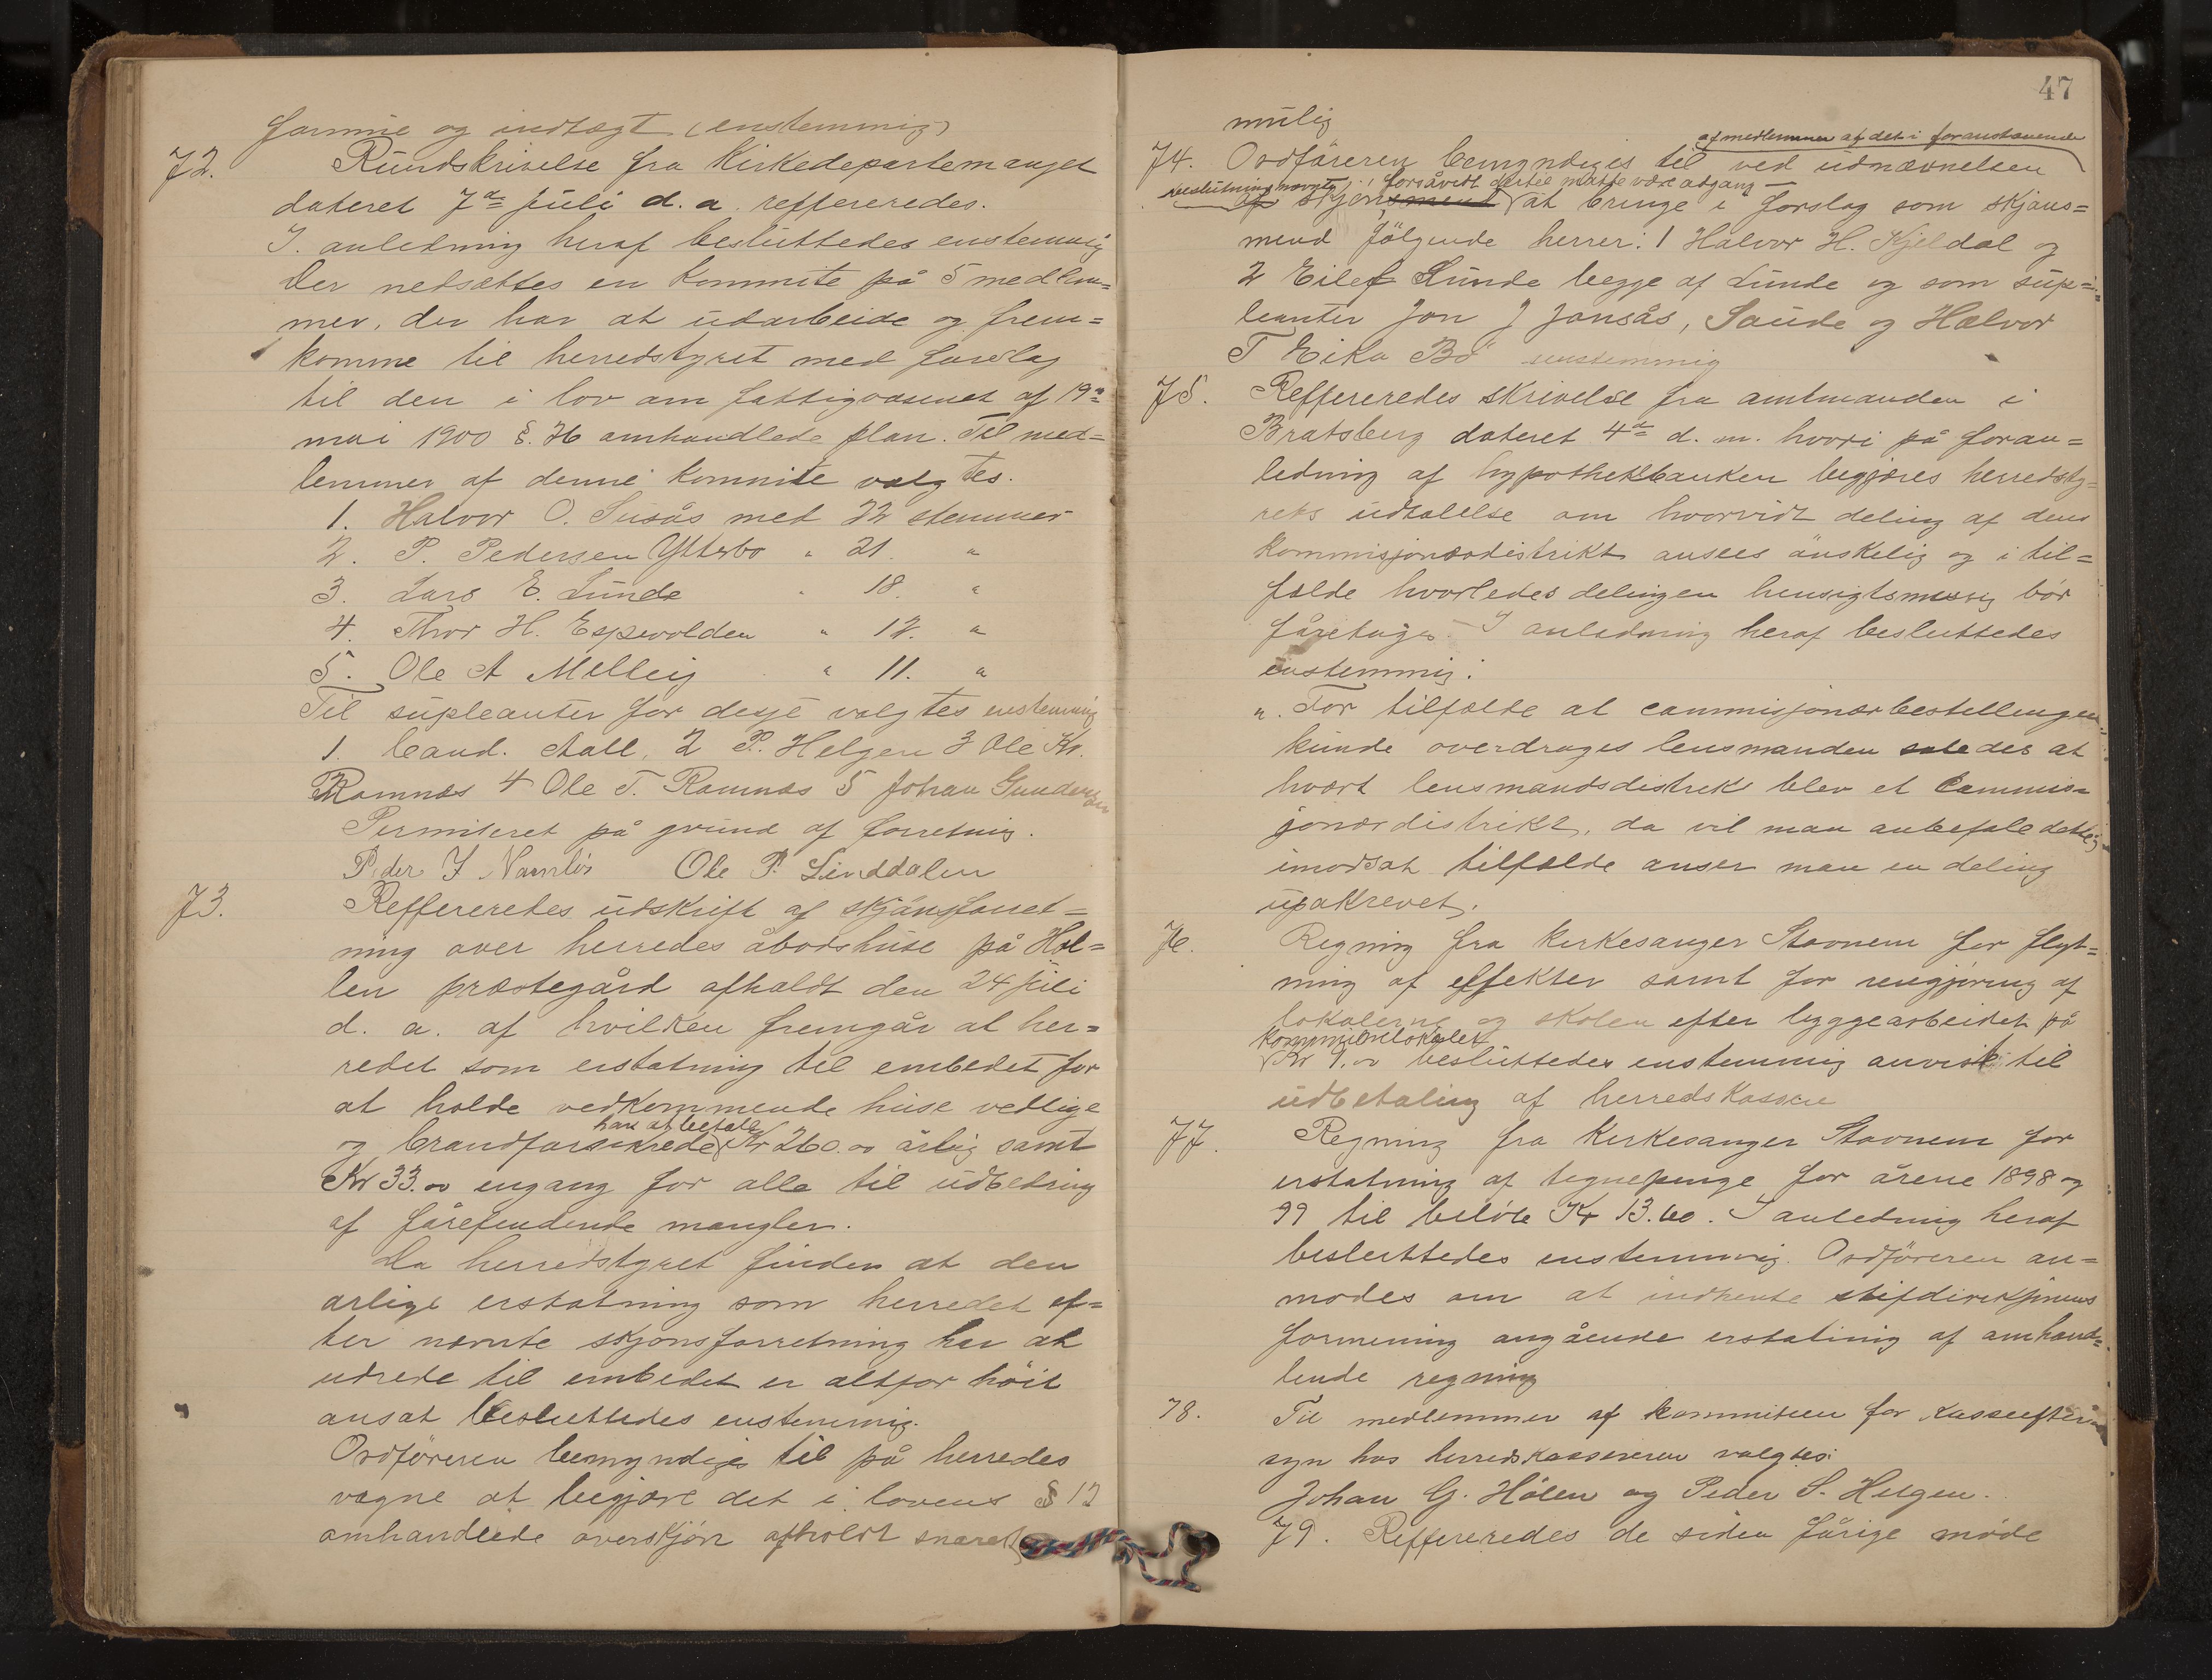 formue og indtægt (enstemmig)
72. Rundskrivelse fra Kirkedepartemanget
dateret 7de juli d. a. reffereredes.
I. anledning heraf besluttedes enstemmig
Der nedsættes en kommite på 5 medlem=
mer, der har at udarbeide og frem=
komme til herredstyret med forslag
til den i lov om fattigvæsenet af 19de
mai 1900 §. 76 omhandlede plan. Til med=
lemmer af denne kommite valgtes.
1. Halvor O. Susås met 22 stemmer
2. P. Pedersen Ytterbo " 21. "
3. Lars E. Lunde " 18. "
4. Thor H. Espevolden " 12. "
5. Ole A Melteig " 11. "
Til supleanter for desse valgtes enstemmig
1. Cand. Aall, 2 P. Helgen 3 Ole Kr.
Romnæs 4 Ole T. Romnæs 5 Johan Gundersen
Permiteret på grund af forretnig.
Peder J Namløs Ole P. Linddalen
73. Reffereredes udskrift af skjønsforret=
ning over herredes åbodshuse på Hol=
len præstegård afholdt den 24 juli
d. a. af hvilken fremgår at her=
redet som erstatning til embedet for
at holde vedkommende huse vedlige
har at betale
og brandforsikrede Kr 260.00 årlig samt
Kr 33.00 engang for alle til udbedring
af førefindende mangler.
Da herredstyret finder at den
årlige erstatning som herredet ef=
ter nævnte skjønsforretning har at
udrede til embedet er altfor höit
ansat besluttedes enstemmig.
Ordföreren bemyndiges til på herredes
vegne at begjære det i lovens § 12
omhandlede overskjön afholdt snarest
47
mulig
af medlemmer af det i foranstaaende
74. Ordföreren bemyndiges til ved udnævnelsen
beslutning nævnte forsåvidt dertil måtte være adgang —
af skjönsmend at bringe i forslag som skjöns=
mend fölgende herrer: 1 Halvor H. Kjeldal og
2 Eilef Lunde begge af Lunde og som sup=
leanter Jon J Jonsås, Saude og Halvor
T Eika Bö enstemmig
75. Reffereredes skrivelse fra amtmanden i
Bratsberg dateret 4de d. m. hvori på foran=
ledning af hypothekbanken begjæres herredsty=
rets udtalelse om hvorvidt deling af dens
kommisjonærdistrikt ansees önskelig og i til=
fælde hvorledes delingen hensigtsmessig bör
foretages. I anledning heraf besluttedes
enstemmig:
". For tilfælde at commisjonærbestellingen
kunde overdrages lensmanden saledes at
hvært lensmandsdistrikt blev et Commis=
jonærdistrikt, da vil man anbefale dette,
imodsat tilfælde anser man en deling
upakrevet.
76. Regning fra kirkesanger Stavnem for flyt=
ning af effekter samt for rengjøring af
lokalerne og skolen efter byggearbeidet på
kommunelokalet
Kr 9.00 besluttedes enstemmig anvist til
udbetaling af herredskassen
77. Regning fra Kirkesanger Stavnem for
erstatning af tegnepenge for årene 1898 og
99 til beløb Kr 13.60. I anledning heraf
besluttedes enstemmig. Ordföreren an=
modes om at indhente stifdirektjonens
formening angående erstatinig af omhand=
lende regning
78. Til medlemmer af kommiteen for kasseefter=
syn hos herredskassereren valgtes:
Johan G. Hölen og Peder S. Helgen.
79. Reffereredes de siden førige møde